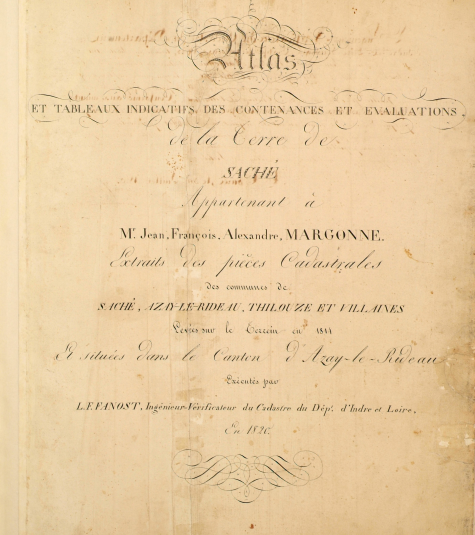 Atlas
ET TABLEAUX INDICATIFS, DES CONTENANCES ET EVALUATIONS,
de la Terre de
SACHÉ
Appartenant à
Mr. Jean, François, Alexandre, MARGONNE,
Extraits des pièces Cadastrales
des communes de
SACHÉ, AZAY-LE-RIDEAU, THILOUZE ET VILLAINES
Levées sur le Terrein en
Et situées dans le Canton d'Azay-le-Rideau
Exécutés par
L.F. FANOST, Ingénieur-Vérificateur du Cadastre du Dépt. d'Indre et Loire,
En 1820.